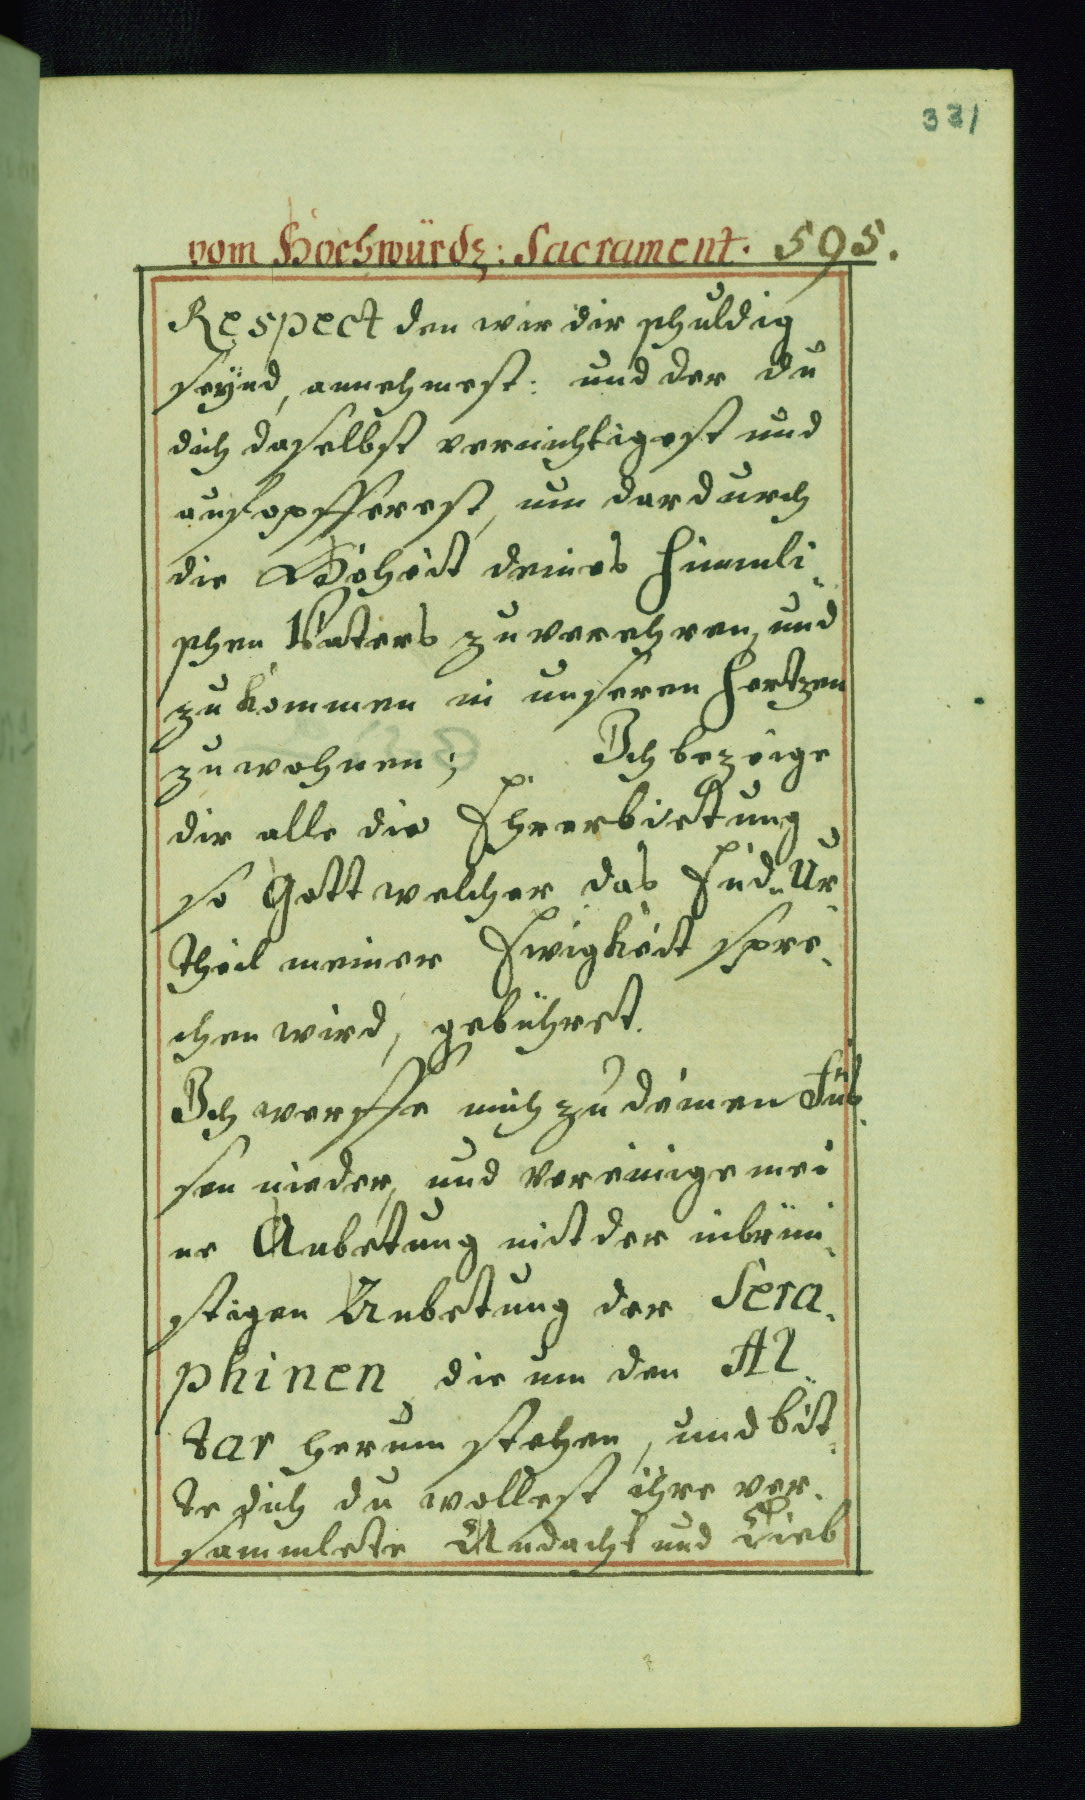 331
vom Hochwürdg: Sacrament. 595.
Respect den wir dir schuldig
seÿnd, annehmest: und der du
dich daselbst vernichtigest und
aufopfferest, um dardurch
die Hoheit deines Himmli-
schen Vaters zu verehren, und
zu kommen in unseren Hertzen
zu wohnen; Ich bezeige
dir alle die Ehrerbietung
so Gott welcher das End-Ur-
theil meiner Ewigkeit spre-
chen wird, gebühret.
Ich werffe mich zu deinen Füs-
sen nieder, und vereinige mei
ne Anbetung mit der inbrün-
stigen Anbetung der Sera-
phinen die um den Al-
tar herum stehen, und bit-
te dich du wollest ihre ver-
sammlete Andacht und Lieb